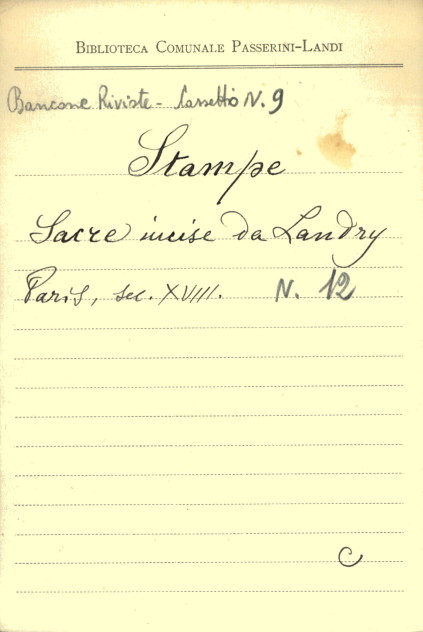 Biblioteca Comunale Passerini-Landi
Bancone Riviste - Cassetto N. 9
Stampe
Sacre incise da Landry
Paris, sec. XVIII. N. 12
C